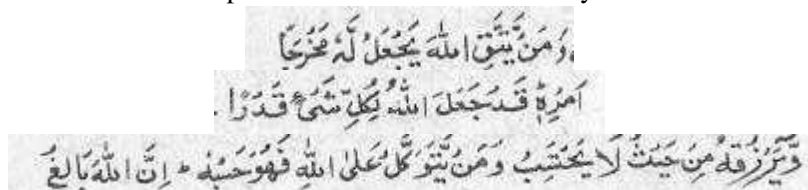 وَمَنْ يَّتَّقِ اللهَ يَجْعَلْ لَّهٗ مَخْرَجًا
اَمْرِهٖ قَدْ جَعَلَ اللهُ لِكُلِّ شَىْءٍ قَدْرًا .
وَّيَرْزُقْهُ مِنْ حَيْثُ لَا يَحْتَسِبُ وَمَنْ يَّتَوَكَّلْ عَلَى اللهِ فَهُوَ حَسْبُهٗ ط اِنَّ اللهَ بَالِغُ